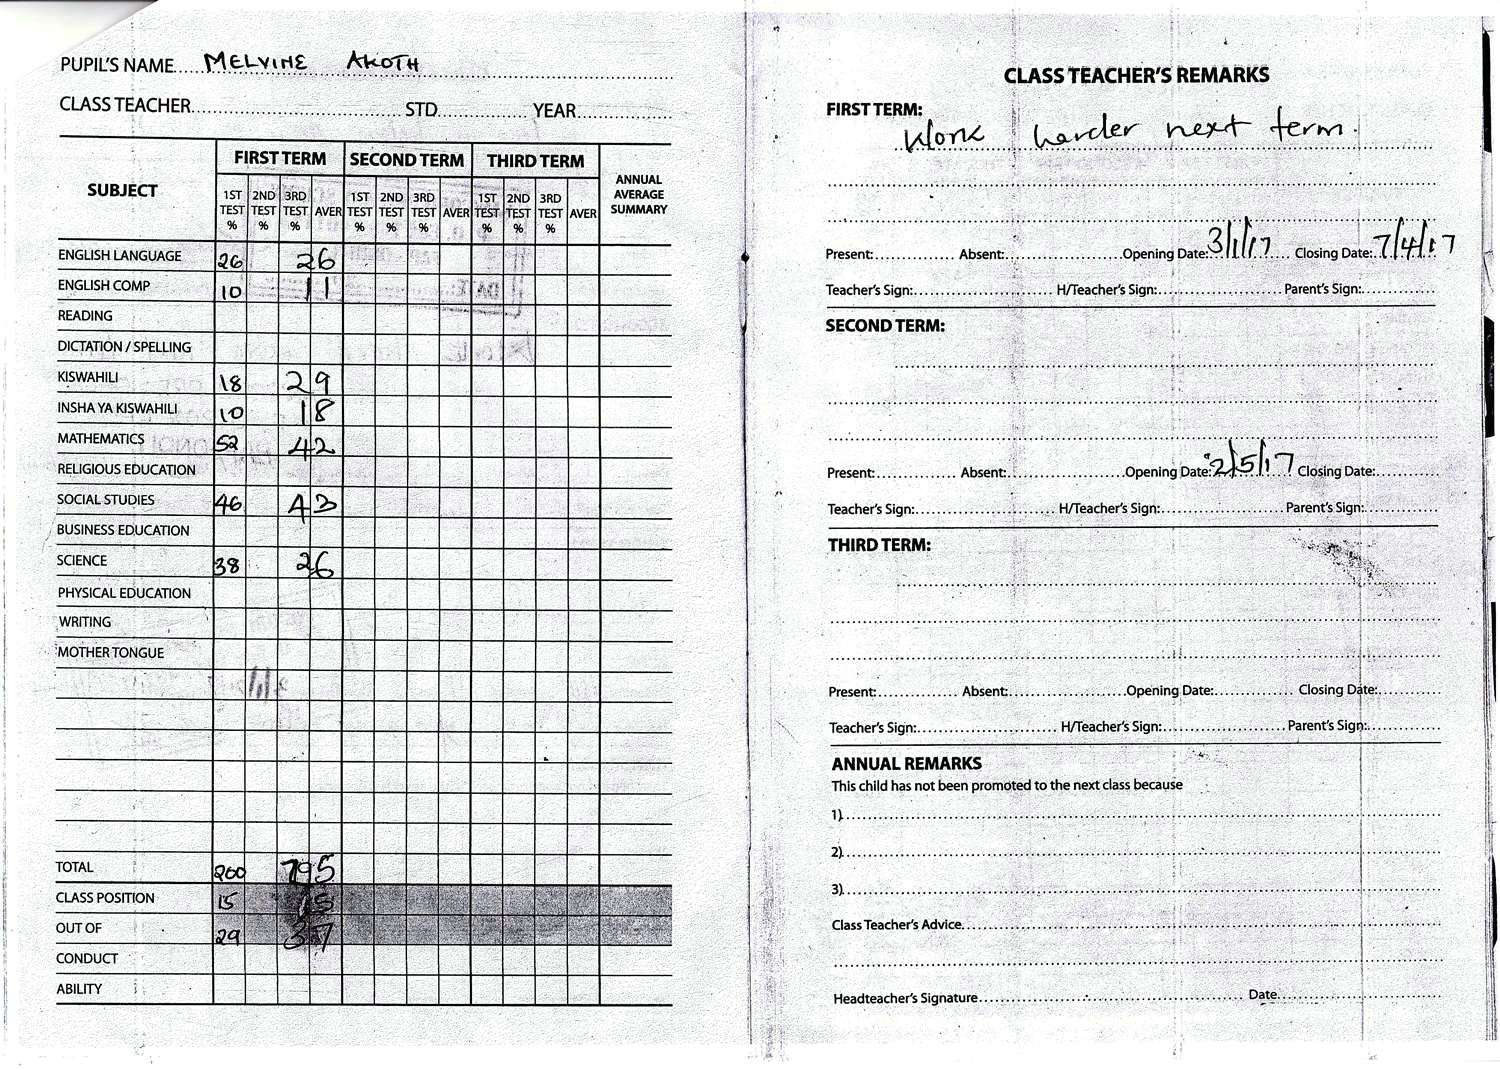 PUPIL'S NAME MELVINE AKOTH
CLASS TEACHER STD YEAR
SUBJECT FIRST TERM SECOND TERM THIRD TERM ANNUAL AVERAGE SUMMARY
1ST TEST % 2ND TEST % 3RD TEST % AVER 1ST TEST % 2ND TEST % 3RD TEST % AVER 1ST TEST % 2ND TEST % 3RD TEST % AVER
ENGLISH LANGUAGE 26 26
ENGLISH COMP 10 11
READING
DICTATION / SPELLING
KISWAHILI 18 29
INSHA YA KISWAHILI 10 18
MATHEMATICS 52 42
RELIGIOUS EDUCATION
SOCIAL STUDIES 46 43
BUSINESS EDUCATION
SCIENCE 38 26
PHYSICAL EDUCATION
WRITING
MOTHER TONGUE
TOTAL 200 195
CLASS POSITION 15 15
OUT OF 29 37
CONDUCT
ABILITY
CLASS TEACHER'S REMARKS
FIRST TERM:
Work harder next term.
Present: Absent: Opening Date: 3/1/17 Closing Date: 7/4/17
Teacher's Sign: H/Teacher's Sign: Parent's Sign:
SECOND TERM:
Present: Absent: Opening Date: 2/5/17 Closing Date:
Teacher's Sign: H/Teacher's Sign: Parent's Sign:
THIRD TERM:
Present: Absent: Opening Date: Closing Date:
Teacher's Sign: H/Teacher's Sign: Parent's Sign:
ANNUAL REMARKS
This child has not been promoted to the next class because
1)
2)
3)
Class Teacher's Advice
Headteacher's Signature Date